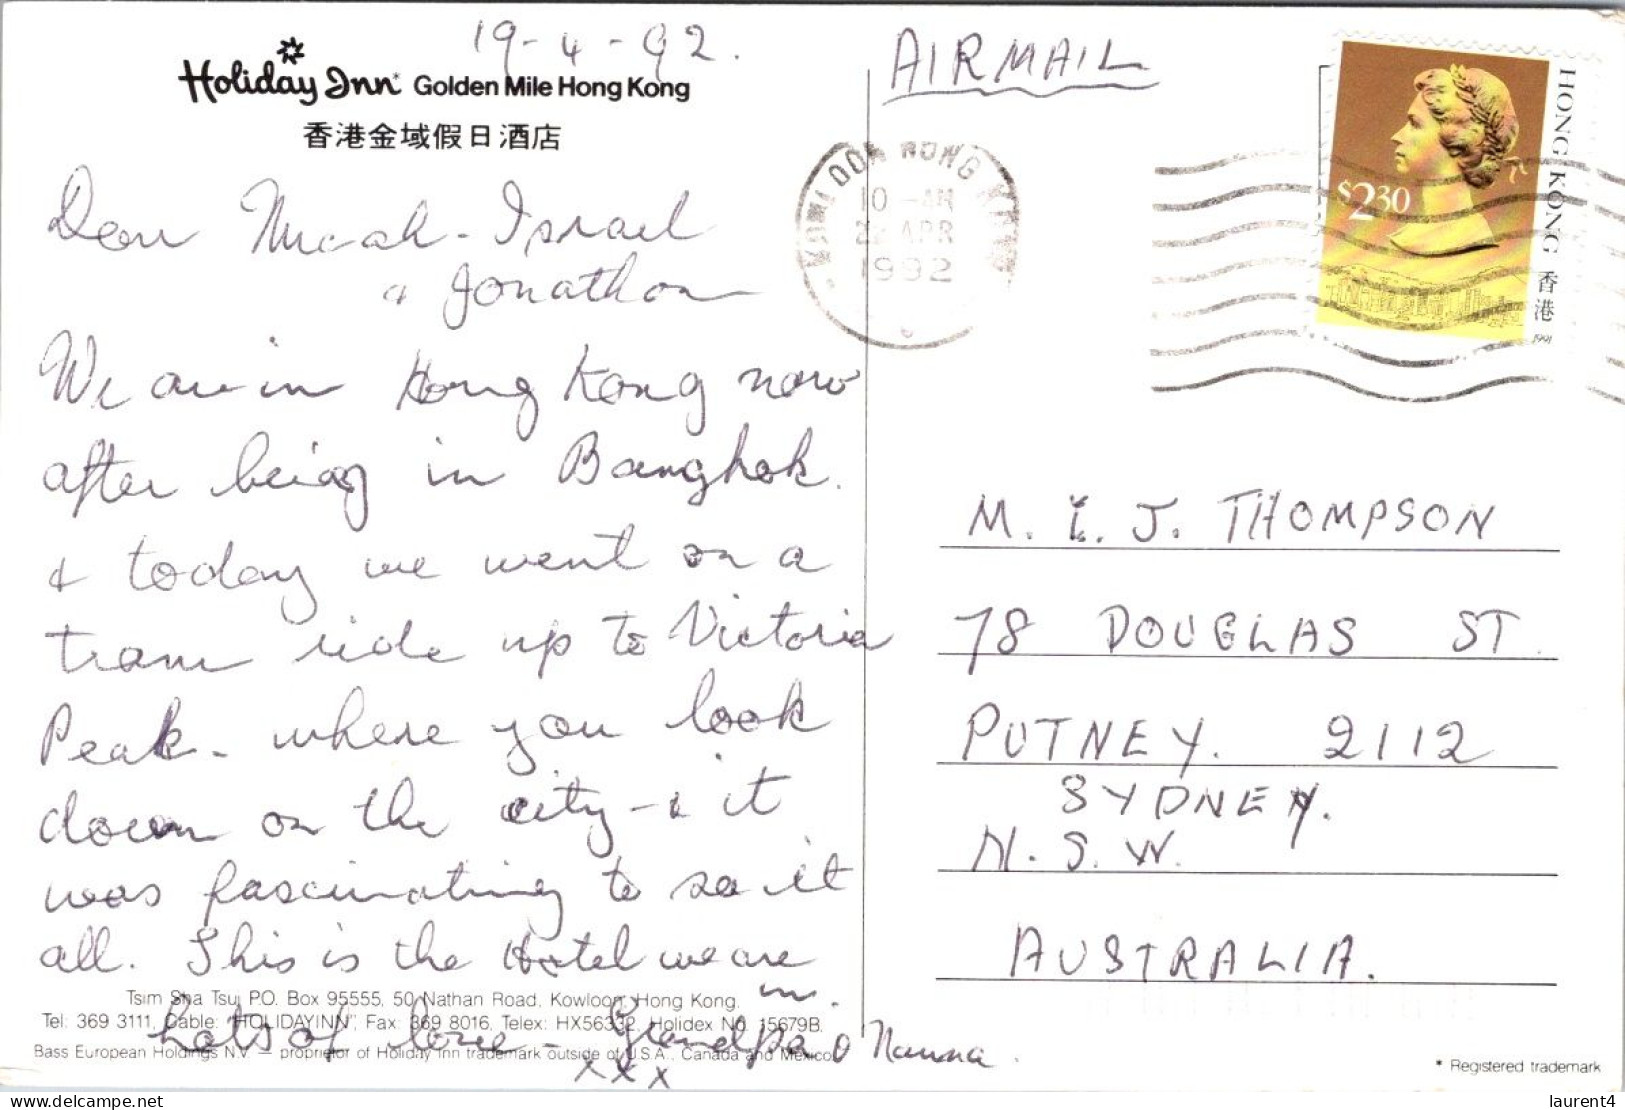 19-4-92.
Holiday Inn* Golden Mile Hong Kong
香港金域假日酒店
Dear Micah - Israel
& Jonathon
We are in Hong Kong now
after being in Bangkok.
& today we went on a
tram ride up to Victoria
Peak - where you look
down on the city - & it
was fascinating to see it
all. This is the Hotel we are
in.
Lots of love - Grandpa & Nanna.
xxx
Tsim Sha Tsui P.O. Box 95555, 50 Nathan Road, Kowloon, Hong Kong.
Tel: 369 3111, Cable: "HOLIDAYINN", Fax: 369 8016, Telex: HX56332, Holidex No. 15679B.
Bass European Holdings N.V. — proprietor of Holiday Inn trademark outside of U.S.A., Canada and Mexico
AIRMAIL
KOWLOON HONG KONG
10 - AM
22 APR
1992
$2.30
HONG KONG 香港
1991
M. I. J. THOMPSON
78 DOUGLAS ST.
PUTNEY. 2112
SYDNEY.
N.S.W.
AUSTRALIA.
* Registered trademark
delcampe.net
laurent4